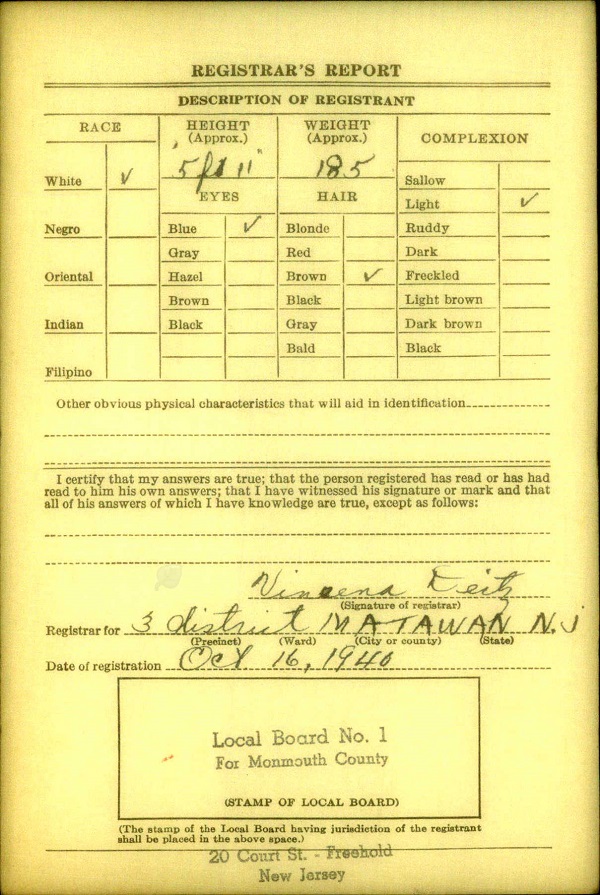 REGISTRAR'S REPORT
DESCRIPTION OF REGISTRANT
RACE
HEIGHT
(Approx.)
WEIGHT
(Approx.)
COMPLEXION
5 ft 11"
185
White ✓
Sallow
EYES
HAIR
Light ✓
Negro
Blue ✓
Blonde
Ruddy
Gray
Red
Dark
Oriental
Hazel
Brown ✓
Freckled
Brown
Black
Light brown
Indian
Black
Gray
Dark brown
Bald
Black
Filipino
Other obvious physical characteristics that will aid in identification
I certify that my answers are true; that the person registered has read or has had
read to him his own answers; that I have witnessed his signature or mark and that
all of his answers of which I have knowledge are true, except as follows:
(Signature of registrar)
Registrar for 3 district MATAWAN N.J
(Precinct) (Ward) (City or county) (State)
Date of registration Oct 16, 1940
Local Board No. 1
For Monmouth County
(STAMP OF LOCAL BOARD)
(The stamp of the Local Board having jurisdiction of the registrant
shall be placed in the above space.)
20 Court St. - Freehold
New Jersey